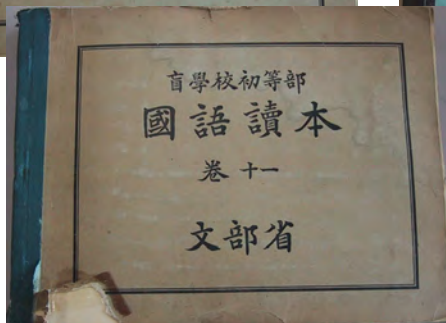 盲學校初等部
國語讀本
卷十一
文部省